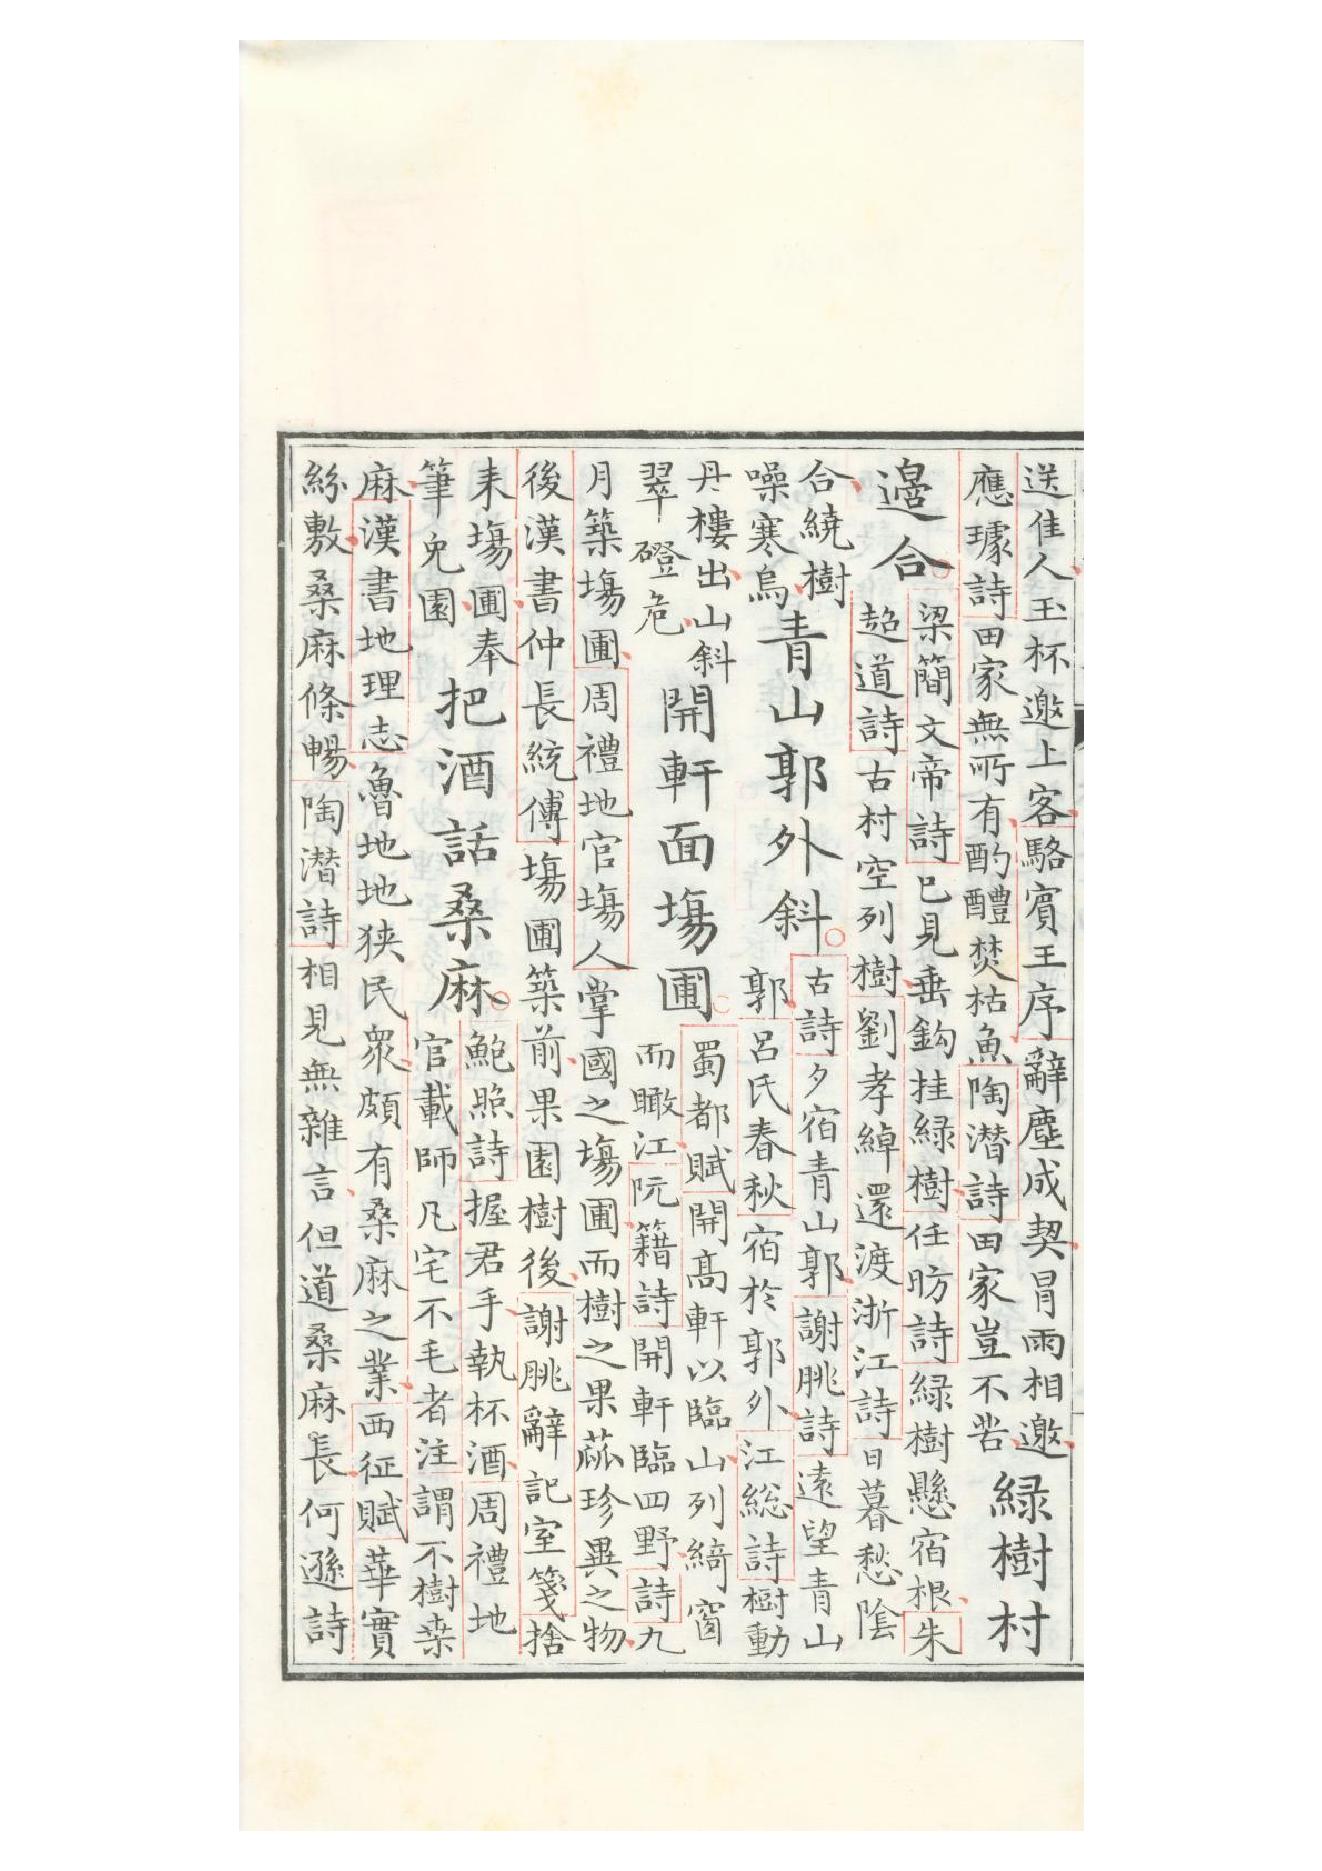 送佳人玉杯邀上客駱賓王序辭塵成契冒雨相邀
應璩詩田家無所有酌醴焚枯魚陶潛詩田家豈不苦
綠樹村
邊合
梁簡文帝詩已見垂鈎挂綠樹任昉詩綠樹懸宿根朱
超道詩古村空列樹劉孝綽還渡浙江詩日暮愁陰
合繞樹
噪寒烏
青山郭外斜
古詩夕宿青山郭謝朓詩遠望青山
郭呂氏春秋宿於郭外江総詩樹動
丹樓出山斜
翠磴危
開軒面塲圃
蜀都賦開高軒以臨山列綺窗
而瞰江阮籍詩開軒臨四野詩九
月築塲圃周禮地官塲人掌國之塲圃而樹之果蓏珍異之物
後漢書仲長統傳塲圃築前果園樹後謝朓辭記室箋捨
耒塲圃奉
筆兔園
把酒話桑麻
鮑照詩握君手執杯酒周禮地
官載師凡宅不毛者注謂不樹桒
麻漢書地理志魯地地狹民衆頗有桑麻之業西征賦華實
紛敷桑麻條暢陶潛詩相見無雜言但道桑麻長何遜詩